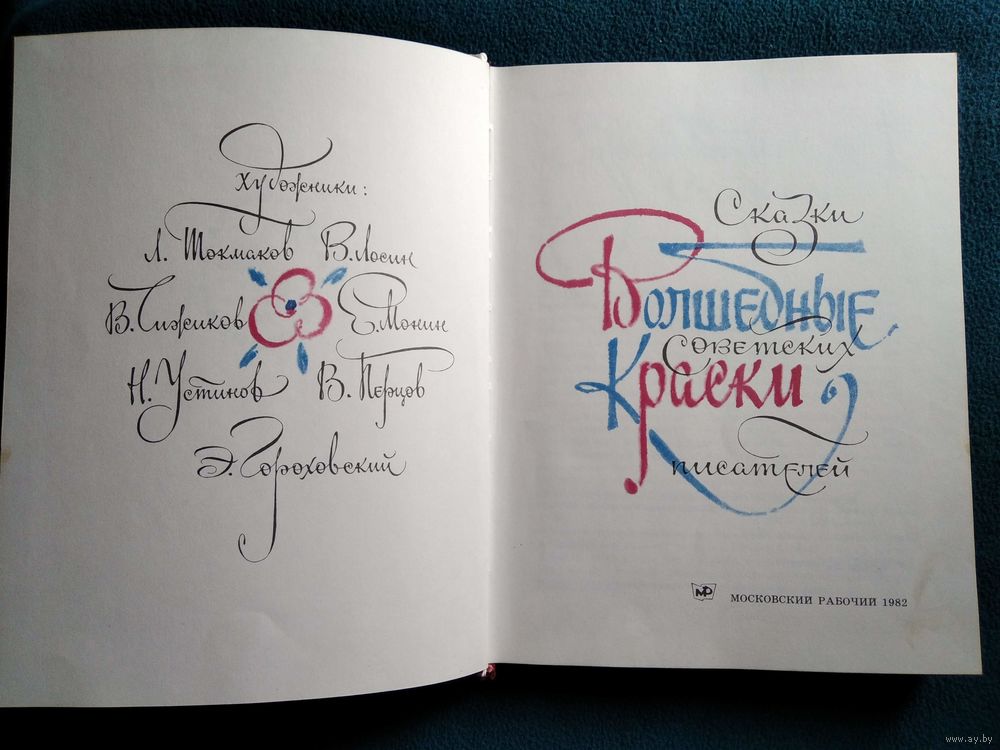 Художники:
Л. Токмаков В. Лосин
В. Чижиков Е. Монин
Н. Устинов В. Перцов
Э. Гороховский
Сказки
Волшебные
Советских
Краски
писателей
МР МОСКОВСКИЙ РАБОЧИЙ 1982
www.ay.by